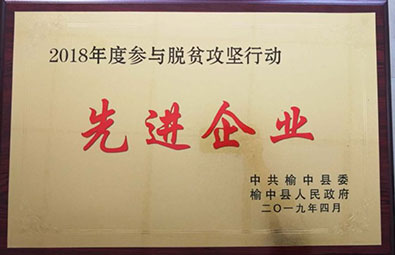 2018年度参与脱贫攻坚行动
先进企业
中共榆中县委
榆中县人民政府
二〇一九年四月